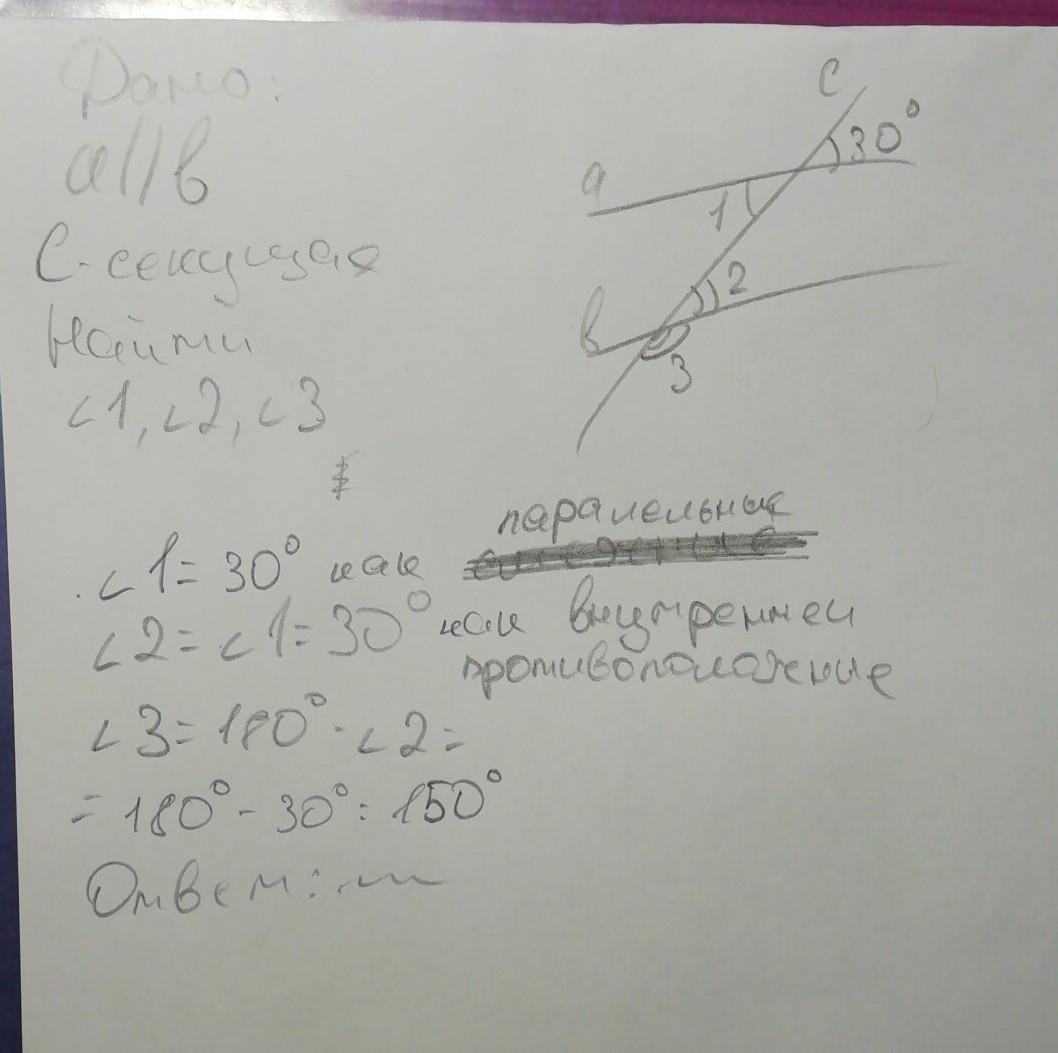 Дано:
a||b
C-секущая
Найти
∠1, ∠2, ∠3
C
30°
a
1
2
b
3
паралельные
∠1= 30° как
∠2= ∠1= 30° как внутренней
противоположение
∠3= 180° - ∠2=
= 180° - 30° = 150°
Ответ: